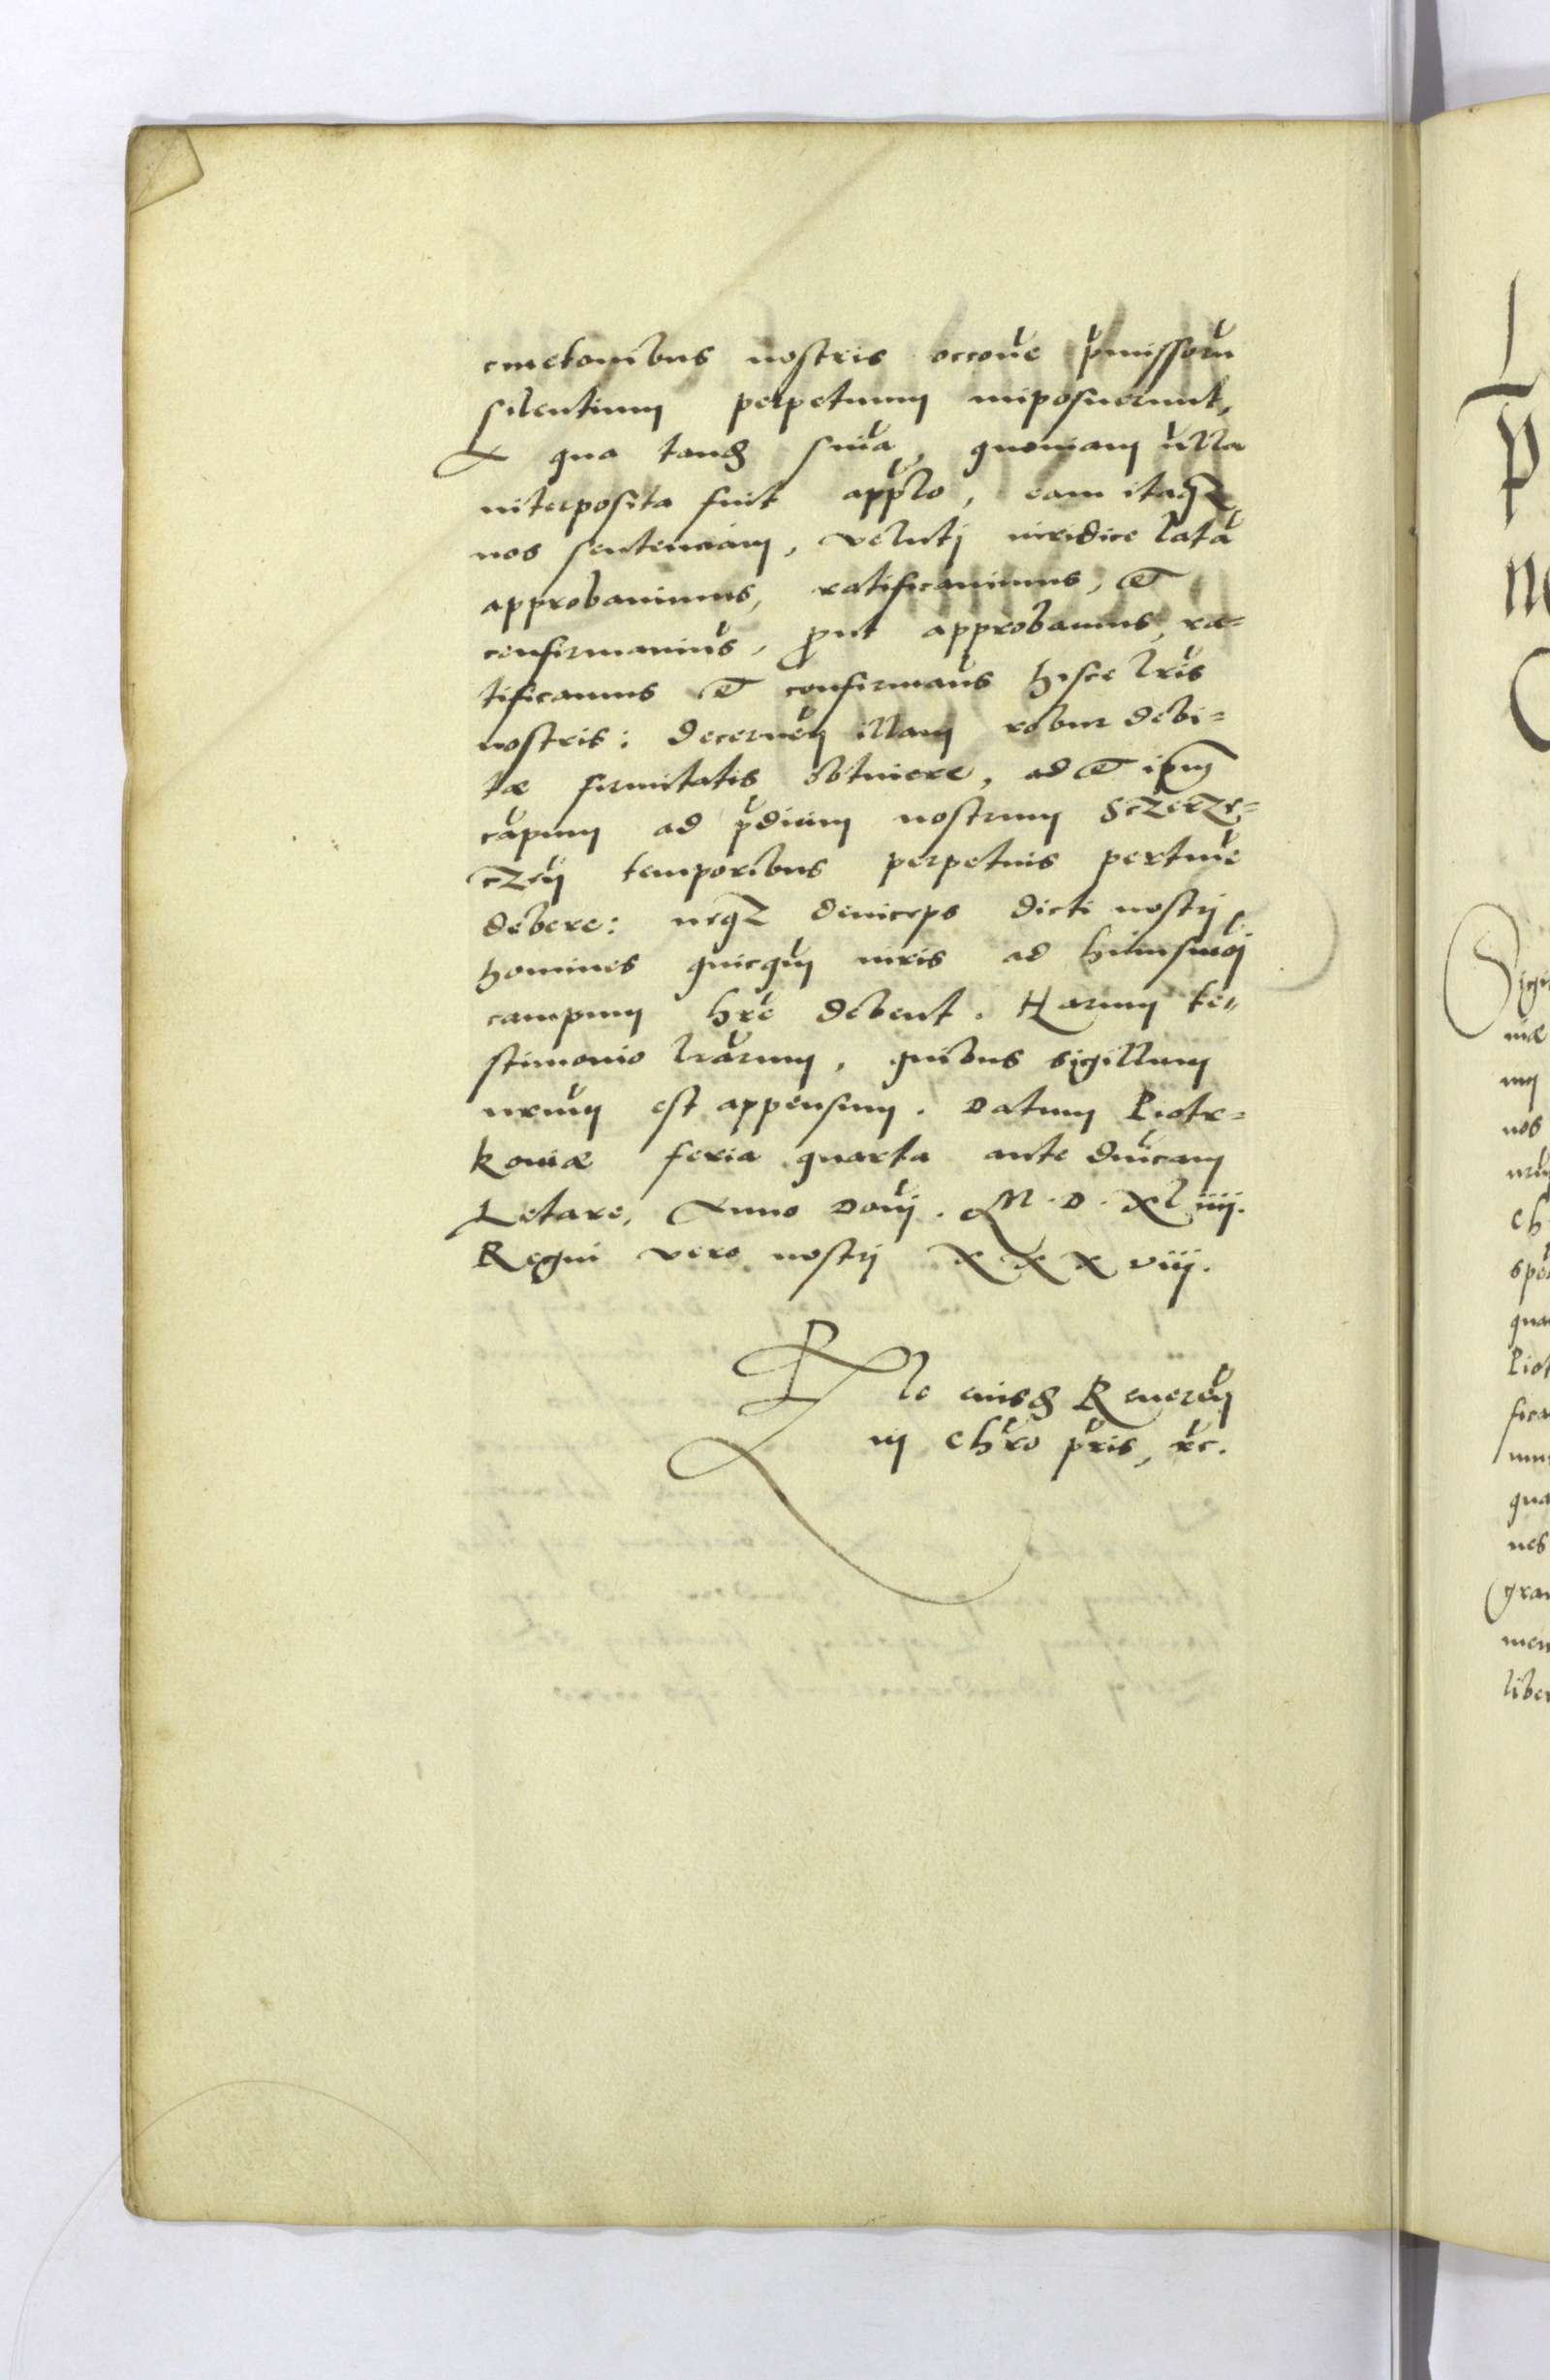 cmetonibus nostris occõne p̃missorũ
silentium perpetuum imposuerunt,
A qua tandẽ sñia, quoniam ñlla
interposita fuit app̃lo, eam itaqꝫ
nos sentenciam, velutj iuridice latã
approbauimus, ratificauimus, et
confirmauimũs, ꝓut approbamus, ra=
tificamus et confirmam̃us hisce lr̃is
nostris: decernẽn illam robur debi=
tæ firmitatis obtinere, ac et ip̃um
cãpum ad p̃dium nostrum Sczerze=
czen temporibus perpetuis pertine͂
debere: neqꝫ deinceps dicti nostrj
homines quicq̃m iuris ad huiusmõj
campum hr̃e debent. Harum te=
stimonio lr̃arum, quibus sigillum
nr̃um est appensum. Datum Piotr=
kouiæ feria quarta ante dñicam
Letare, Anno Domj. M. D. XLiiij.
Regni vero nostrj XXXviij.
Rl̃e eiusdẽ Reuerẽn
in Chr̃o pr̃is, &c̃.
L
P
Sigi
nos
Ch
spe
qua
Piot
fica
qua
nes
gra
men
liber